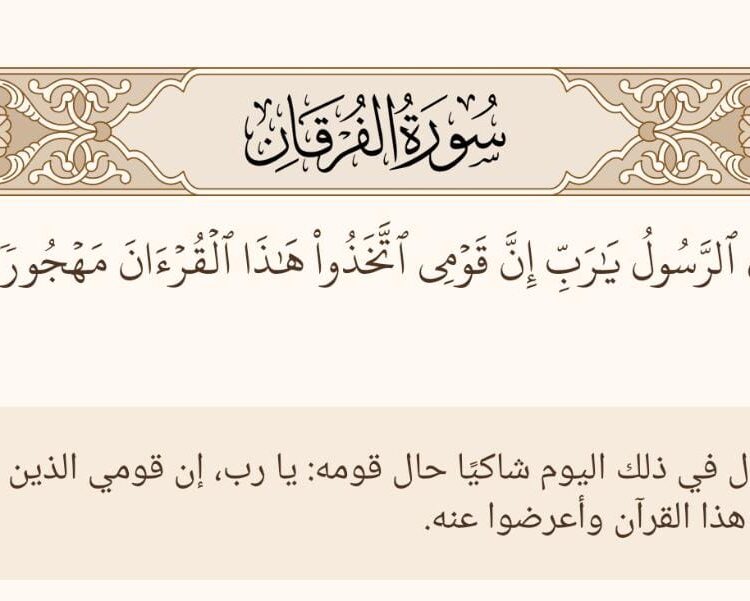 سُورَةُ الفُرْقَانِ
ٱلرَّسُولُ يَـٰرَبِّ إِنَّ قَوْمِى ٱتَّخَذُوا۟ هَـٰذَا ٱلْقُرْءَانَ مَهْجُورًۭ
ل في ذلك اليوم شاكيًا حال قومه: يا رب، إن قومي الذين
هذا القرآن وأعرضوا عنه.